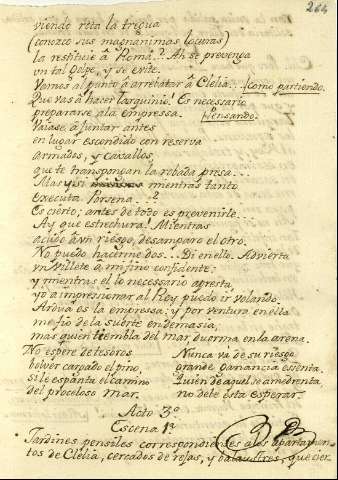 264
viendo rota la tregua
(conozco sus magnanimas locuras)
la restituie à Roma..? Ah se prevenga
un tal Golpe, y se evite.
Vamos al punto à arrebatar à Clelia... (como partiendo.
Que vas à hacer Tarquinio! Es necessario
prepararse ala empressa. (Pensando.
Vaiase à juntar antes
en lugar escondido con reserva
armados, y cavallos,
que te transpongan la robada presa...
Mas y si mientras tanto
executa Porsena...?
Es cierto; antes de todo es prevenirle...
Ay que estrechura! Mientras
acudo à vn riesgo, desamparo el otro.
No puedo hacerme dos... Di en ello. Advierta
vn villete à mi fino confidente:
y mientras el lo necessario apresta,
yo à impresionar al Rey puedo ir volando.
Ardua es la empressa; y por ventura en ella
me fio de la suerte en demasia,
mas quien tiembla del mar, duerma en la arena.
No espere de tesoros
bolver cargado el pino,
si le espanta el camino
del proceloso mar.
Nunca va de su riesgo
grande ganancia essenta.
Quien de aquel se amedrenta
no debe esta esperar.
Acto 3º
Escena 1ª
Jardines pensiles correspondientes a los apartamen-
tos de Clelia, cercados de rejas, y balaustres, que cier-